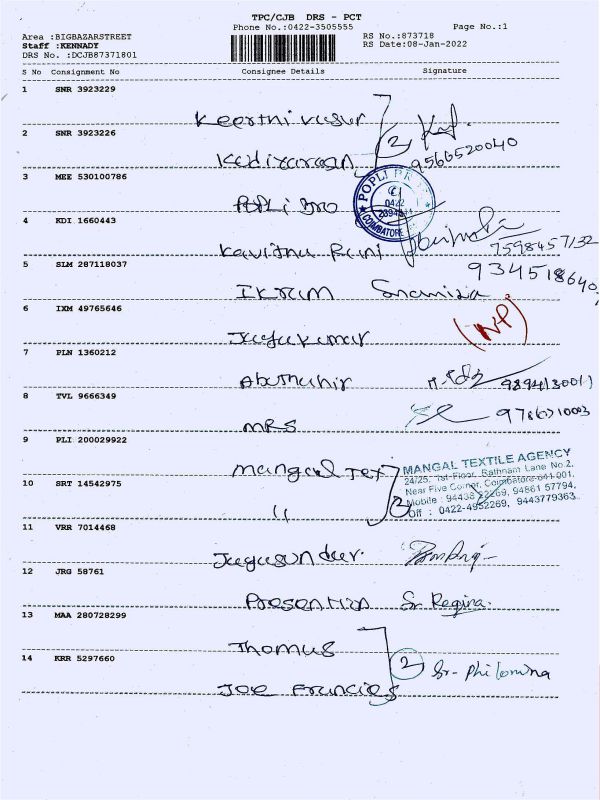 TPC/CJB DRS - PCT
Phone No.:0422-3505555
Page No.:1
Area :BIGBAZARSTREET
RS No.:873718
Staff :KENNADY
RS Date:08-Jan-2022
DRS No. :DCJB87371801
S No Consignment No Consignee Details Signature
1 SNR 3923229
Keerthivasur
2 SNR 3923226
2
9566520040
Kadiravasan
3 MEE 530100786
POPLI
0422
COIMBATORE
POPLi Bro
4 KDI 1660443
Kavitha Rani
7598457132
5 SLM 287118037
934518640
Ikram Shamiza
6 IXM 49765646
(NP)
Jayakumar
7 PLN 1360212
Abuthahir
8 TVL 9666349
MRS
9 PLI 200029922
Mangal Tex
MANGAL TEXTILE AGENCY
24/25, 1st Floor, Rathnam Lane No.2,
Near Five Corner, Coimbatore-641 001.
Mobile : 94438 22269, 94861 57794,
Off : 0422-4952269, 9443779363
10 SRT 14542975
"
2
11 VRR 7014468
Jayasundar.
12 JRG 58761
Presentation Sr Regina.
13 MAA 280728299
Thomas
14 KRR 5297660
2 Sr-Philomina
Joe Francies